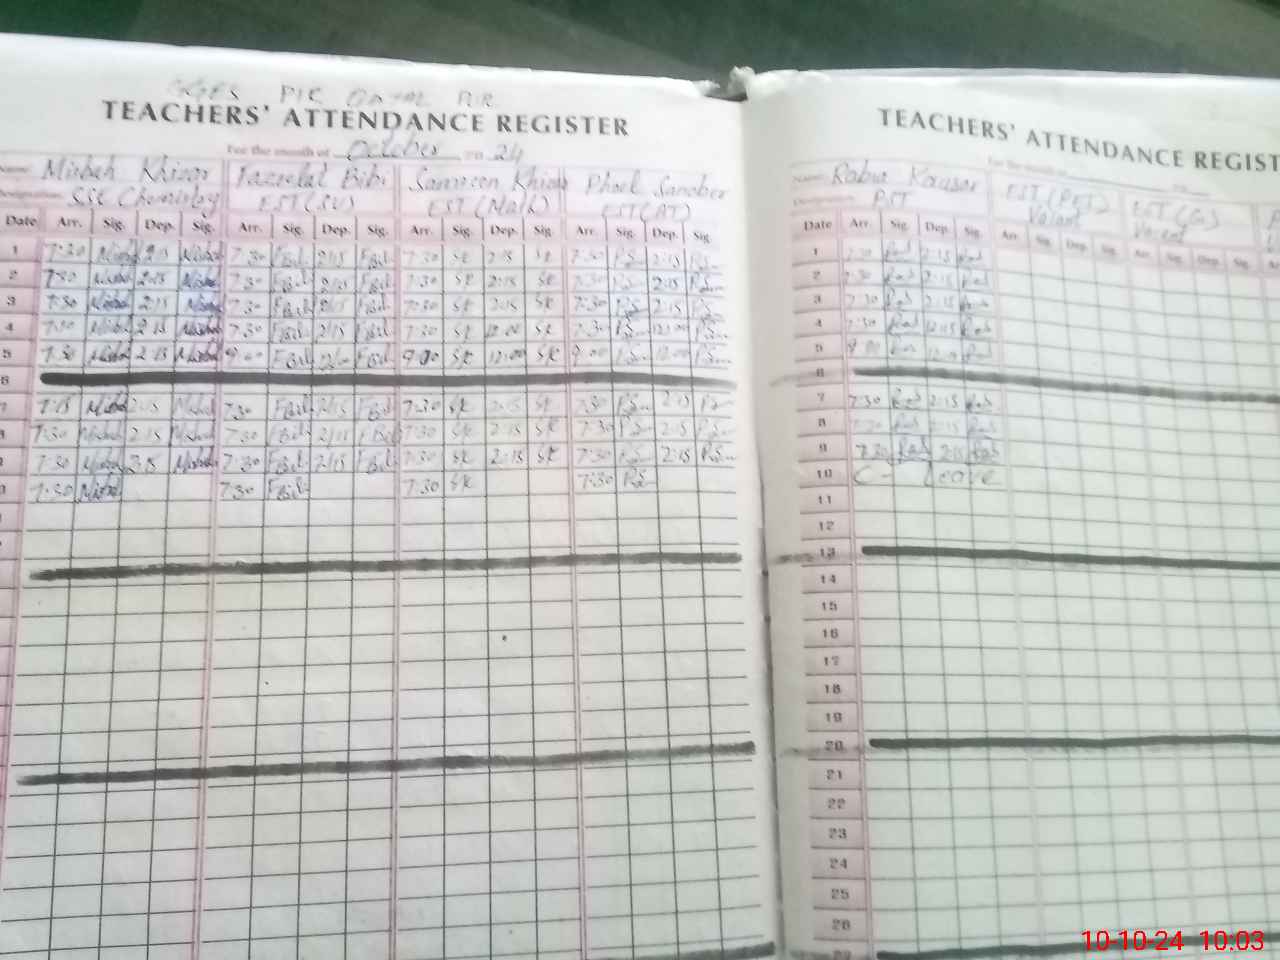 GGES PIR
TEACHERS' ATTENDANCE REGISTER
For the month of October 24
Name: Misbah Khizar Fazeelat Bibi Samreen Khizar Phool Sanober
Designation: SSt Chemistry EST (SV) EST (Math) EST (AT)
Date Arr. Sig. Dep. Sig. Arr. Sig. Dep. Sig. Arr. Sig. Dep. Sig. Arr. Sig. Dep. Sig.
1 7:30 Misbah 2:15 Misbah 7:30 FBibi 2:15 FBibi 7:30 SK 2:15 SK 7:30 PS 2:15 PS
2 7:30 Misbah 2:15 Misbah 7:30 FBibi 2:15 FBibi 7:30 SK 2:15 SK 7:30 PS 2:15 PS
3 7:30 Misbah 2:15 Misbah 7:30 FBibi 2:15 FBibi 7:30 SK 2:15 SK 7:30 PS 2:15 PS
4 7:30 Misbah 2:15 Misbah 7:30 FBibi 2:15 FBibi 7:30 SK 12:00 SK 7:30 PS 12:00 PS
5 7:30 Misbah 2:15 Misbah 9:00 FBibi FBibi 9:00 SK 12:00 SK 9:00 PS 12:00 PS
6
7:15 Misbah 2:15 Misbah 7:30 FBibi 2:15 FBibi 7:30 SK 2:15 SK 7:30 PS 2:15 PS
7:30 Misbah 2:15 Misbah 7:30 FBibi 2:15 FBibi 7:30 SK 2:15 SK 7:30 PS 2:15 PS
7:30 Misbah 2:15 Misbah 7:30 FBibi 2:15 FBibi 7:30 SK 2:15 SK 7:30 PS 2:15 PS
7:30 Misbah 7:30 FBibi 7:30 SK 7:30 PS
TEACHERS' ATTENDANCE REGIST
For the month of
Name: Rabia Kausar EST (PET) EST (G)
Designation: PST Vacant Vacant
Date Arr. Sig. Dep. Sig. Arr. Sig. Dep. Sig. Arr. Sig. Dep. Sig.
1 7:30 Rab 2:15 Rab
2 7:30 Rab 2:15 Rab
3 7:30 Rab 2:15 Rab
4 7:30 Rab 12:15 Rab
5 9:00 Rab 12:00 Rab
6
7 7:30 Rab 2:15 Rab
8 7:30 Rab 2:15 Rab
9 7:30 Rab 2:15 Rab
10 C- Leave
11
12
13
14
15
16
17
18
19
20
21
22
23
24
25
26
10-10-24 10:03